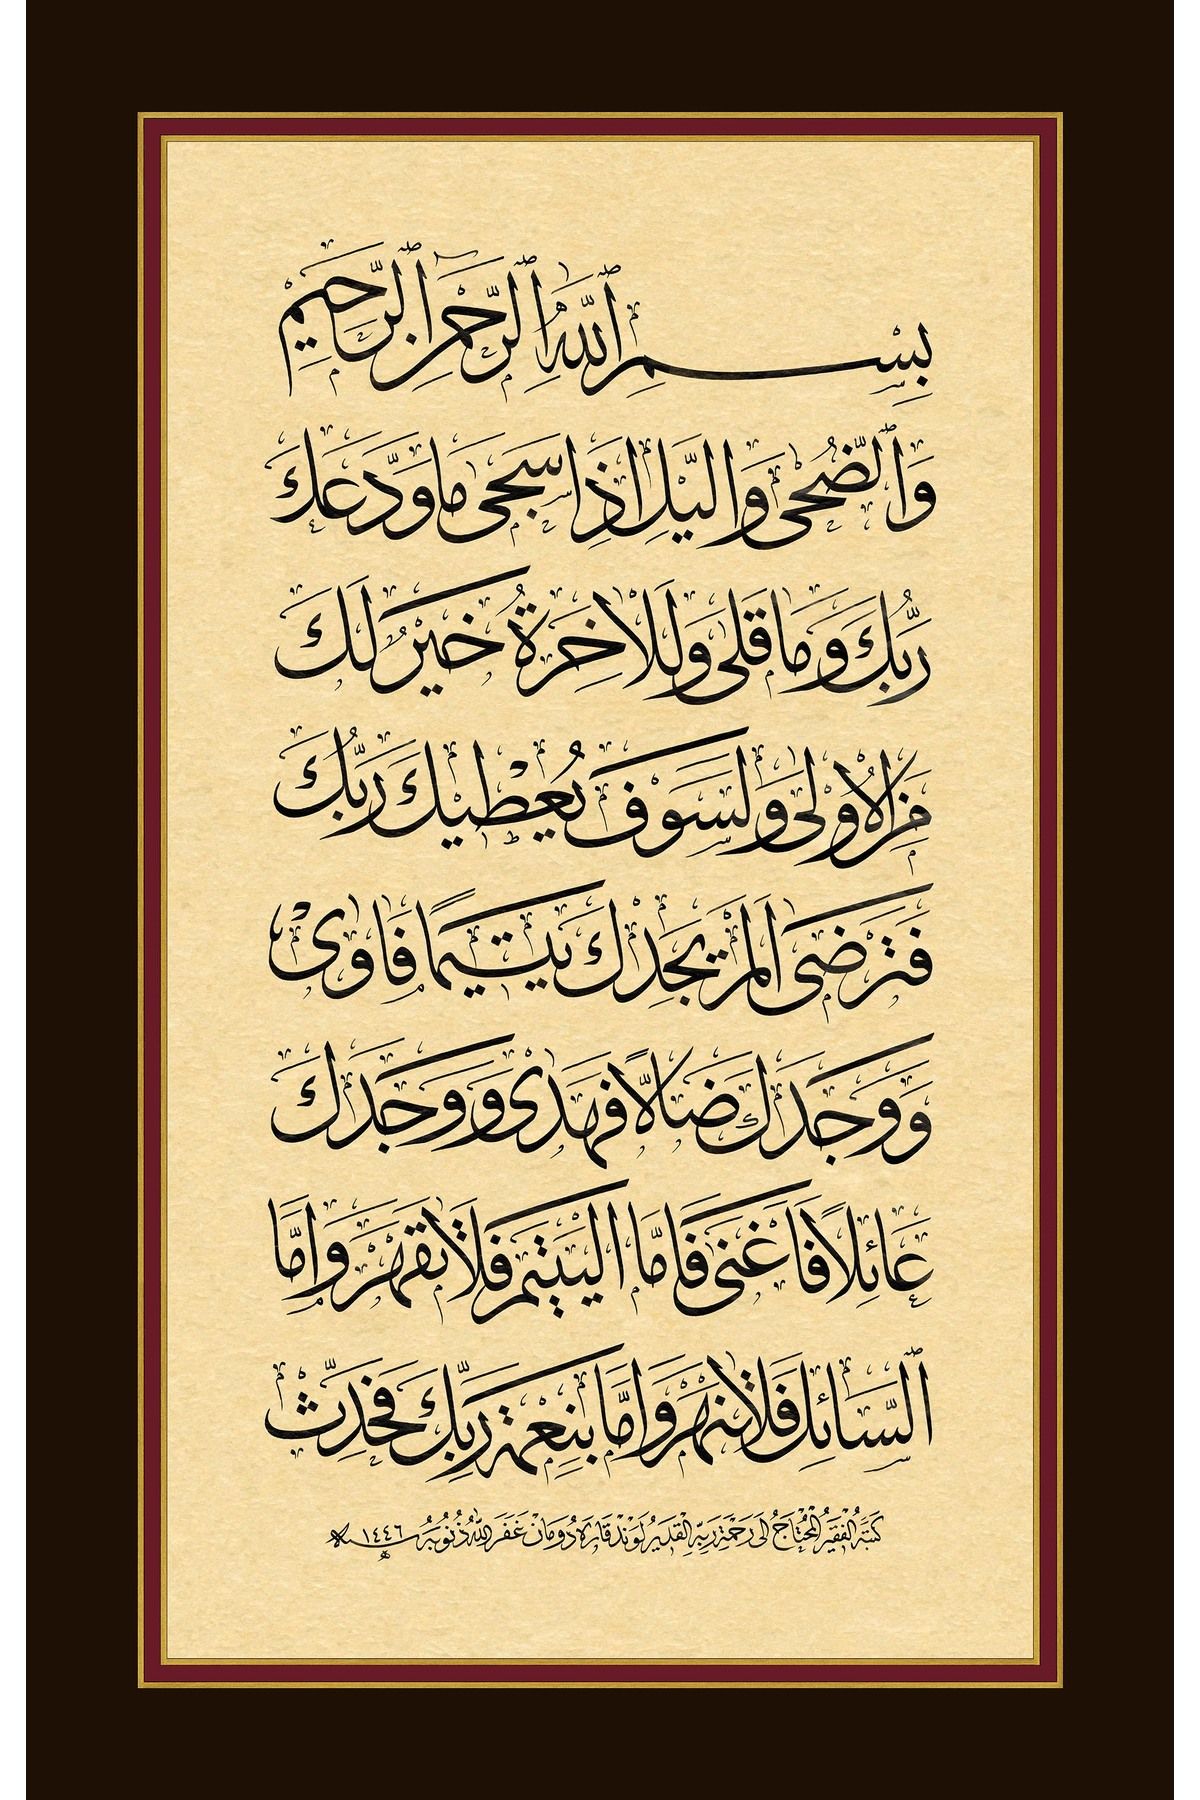 بِسْمِ ٱللَّهِ ٱلرَّحْمٰنِ ٱلرَّحِيمِ
وَٱلضُّحٰى وَالَّيْلِ اِذَا سَجٰى مَا وَدَّعَكَ
رَبُّكَ وَمَا قَلٰى وَلَلْاٰخِرَةُ خَيْرٌ لَكَ
مِنَ الْاُولٰى وَلَسَوْفَ يُعْطِيكَ رَبُّكَ
فَتَرْضٰى اَلَمْ يَجِدْكَ يَتِيمًا فَاٰوٰى
وَوَجَدَكَ ضَالًّا فَهَدٰى وَوَجَدَكَ
عَائِلًا فَاَغْنٰى فَاَمَّا الْيَتِيمَ فَلَا تَقْهَرْ وَاَمَّا
ٱلسَّائِلَ فَلَا تَنْهَرْ وَاَمَّا بِنِعْمَةِ رَبِّكَ فَحَدِّثْ
كَتَبَهُ الْفَقِيرُ الْمُحْتَاجُ اِلَى رَحْمَةِ رَبِّهِ الْقَدِيرِ لَوَنْد قَارَه دُومَانْ غَفَرَ اللّٰهُ ذُنُوبَهُ سنة ١٤٤٦